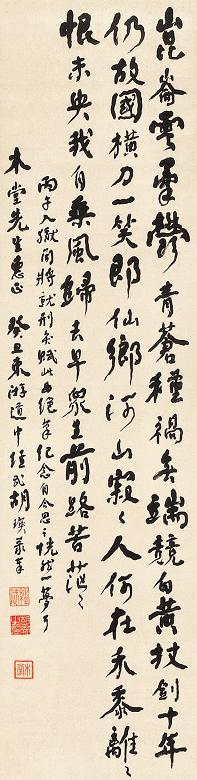 崑崙雲氣鬱青蒼種禍無端競白黃杖劍十年
仍故國橫刀一笑即仙鄉河山寂〻人何在禾黍離〻
恨未央我自乘風歸去早眾生前路苦茫〻
丙午入獄聞將就刑矣賦此為絕筆紀念自今思之恍然一夢耳
木堂先生惠正 癸丑東游道中經武胡瑛葊手